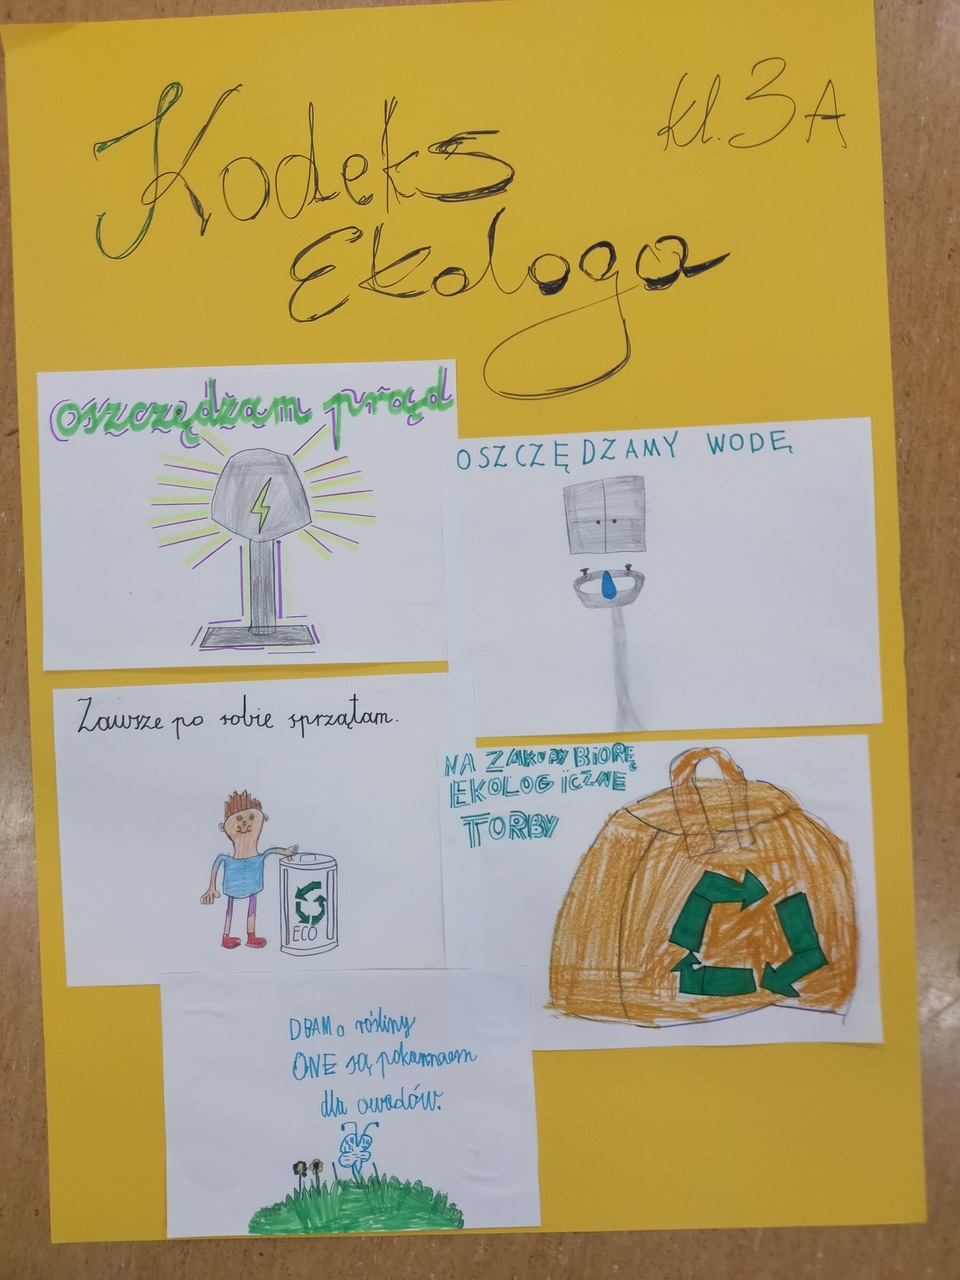 Kodeks
Ekologa
kl. 3A
oszczędzam prąd
OSZCZĘDZAMY WODĘ
Zawsze po sobie sprzątam.
ECO
NA ZAKUPY BIORĘ
EKOLOGICZNE
TORBY
DBAM o rośliny
ONE są pokarmem
dla owadów.